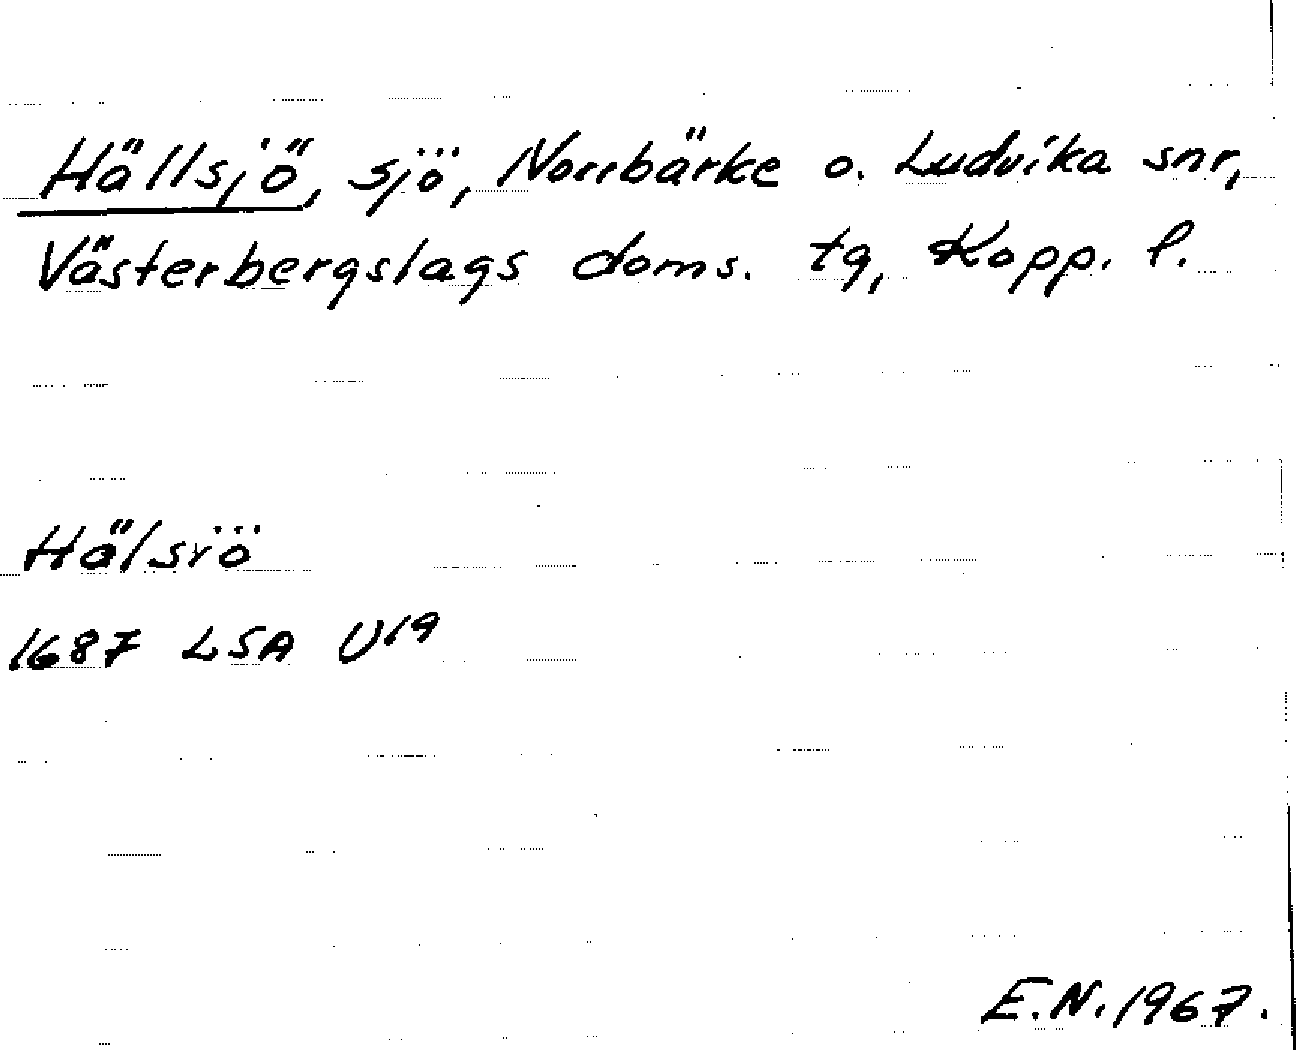 Hällsjö, sjö, Norrbärke o. Ludvika snr,
Västerbergslags doms. tg, Kopp. l.
Hälsiö
1687 LSA U19
E.N. 1967.